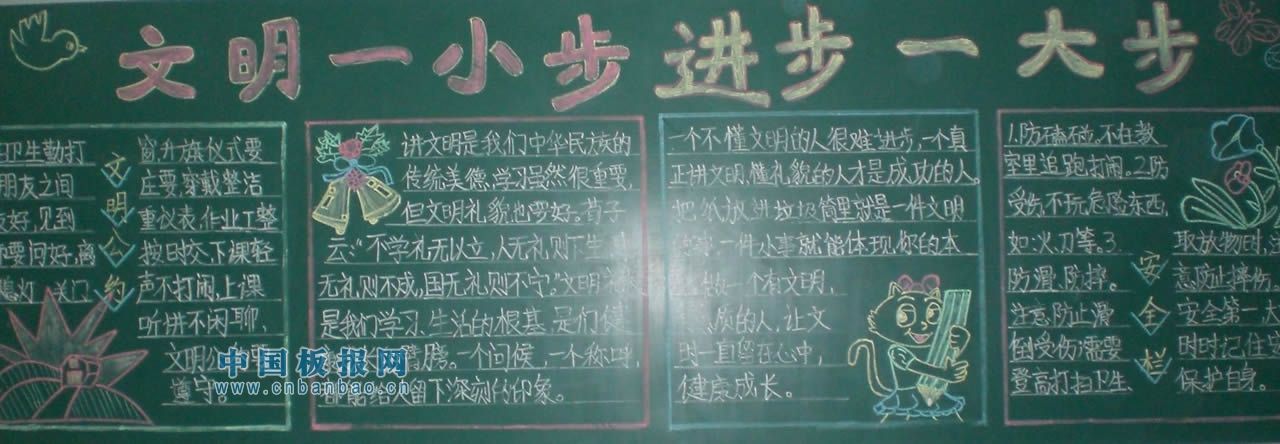 文明一小步 进步一大步
文明公约
卫生勤打
朋友之间
好,见到
要问好,离
灯、关门
窗,升旗仪式要
庄要穿戴整洁
重仪表,作业工整
按日交、下课轻
声不打闹,上课
听讲不闲聊、
文明公
遵守。
讲文明是我们中华民族的
传统美德,学习虽然很重要,
但文明礼貌也要好。荀子
云:“不学礼无以立,人无礼则不生,
无礼则不成,国无礼则不宁。”文明礼
是我们学习、生活的根基,是们健
一个问候,一个称呼,
留下深刻的印象。
一个不懂文明的人很难进步,一个真
正讲文明,懂礼貌的人才是成功的人。
把纸放进垃圾筒里就是一件文明
一件小事就能体现你的本
做一个有文明,
质的人,让文
明一直留在心中,
健康成长。
安全栏
1.防不在教
室里追跑打闹。2.防
受伤,不玩危险东西,
如:火、刀等。3.
防滑、防摔。
注意防止滑
倒受伤;需要
登高打扫卫生、
取放物时,
意防止摔伤。
安全第一,
时时记住
保护自身。
中国板报网
www.cnbanbao.cn